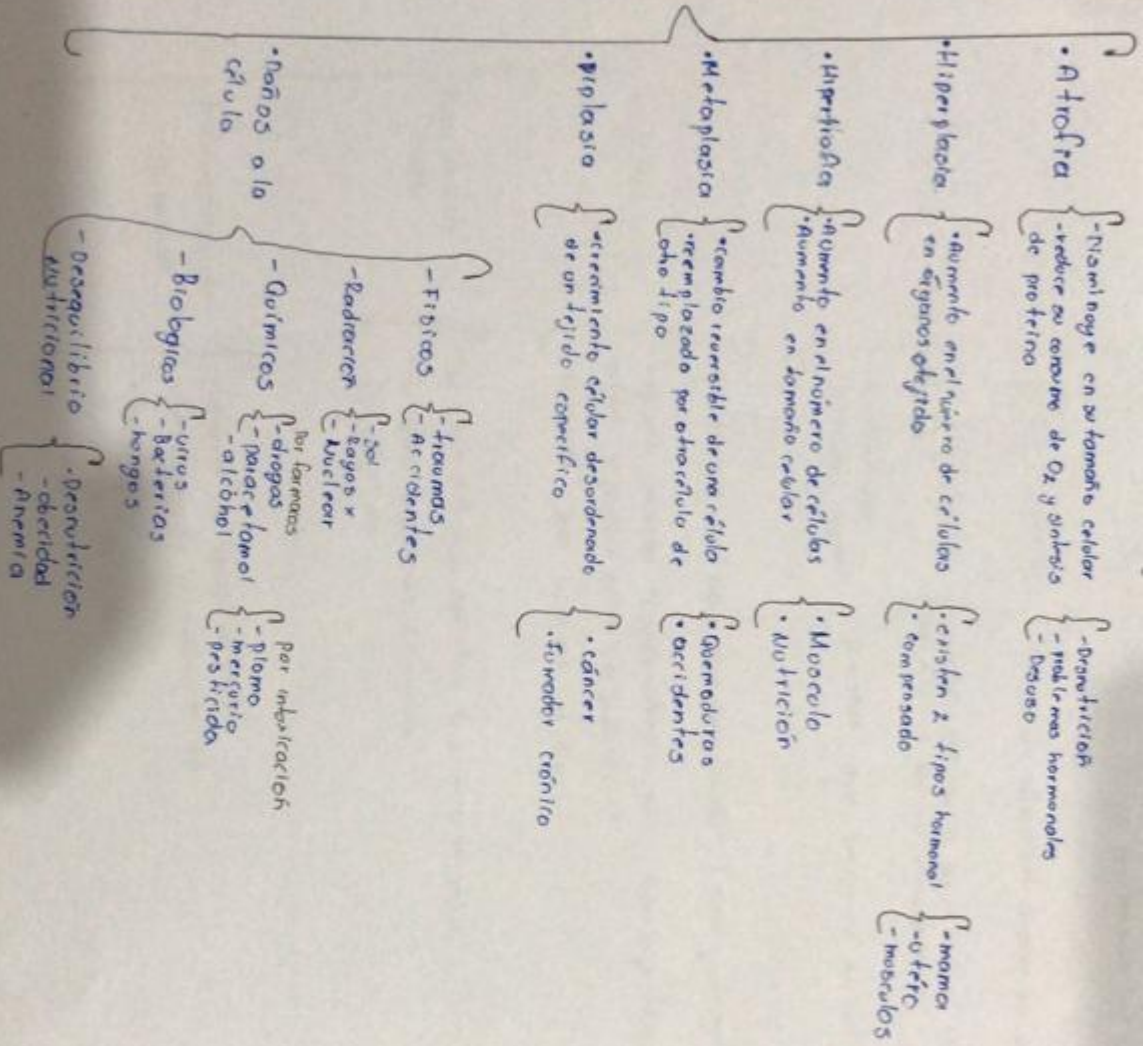 • Atrofia
-Disminuye en su tamaño celular
-reduce su consumo de O2 y sintesis
de proteina
-Desnutrición
-problemas hormonales
-Desuso
• Hiperplasia
• Aumento en el número de células
en órganos o tejido
• existen 2 tipos hormonal
• compensado
-mama
-utéro
-musculos
• Hipertrofia
• Aumento en el número de células
• Aumento en tamaño celular
• Musculo
• Nutrición
• Metaplasia
• cambio reversible de una célula
• reemplazado por otra célula de
otro tipo
• Quemaduras
• accidentes
• Displasia
• crecimiento célular desordenado
de un tejido especifico
• cáncer
• fumador crónico
• Daños a la
célula
- Fisicos
-traumas
- Accidentes
-Radiacion
-sol
-Rayos x
-Nuclear
- Químicos
Por farmacos
-drogas
-paracetamol
-alcohol
por intoxicación
-plomo
-mercurio
-pesticida
- Biologicos
-virus
-Bacterias
-hongos
- Desequilibrio
Nutricional
-Desnutrición
-obecidad
-Anemia